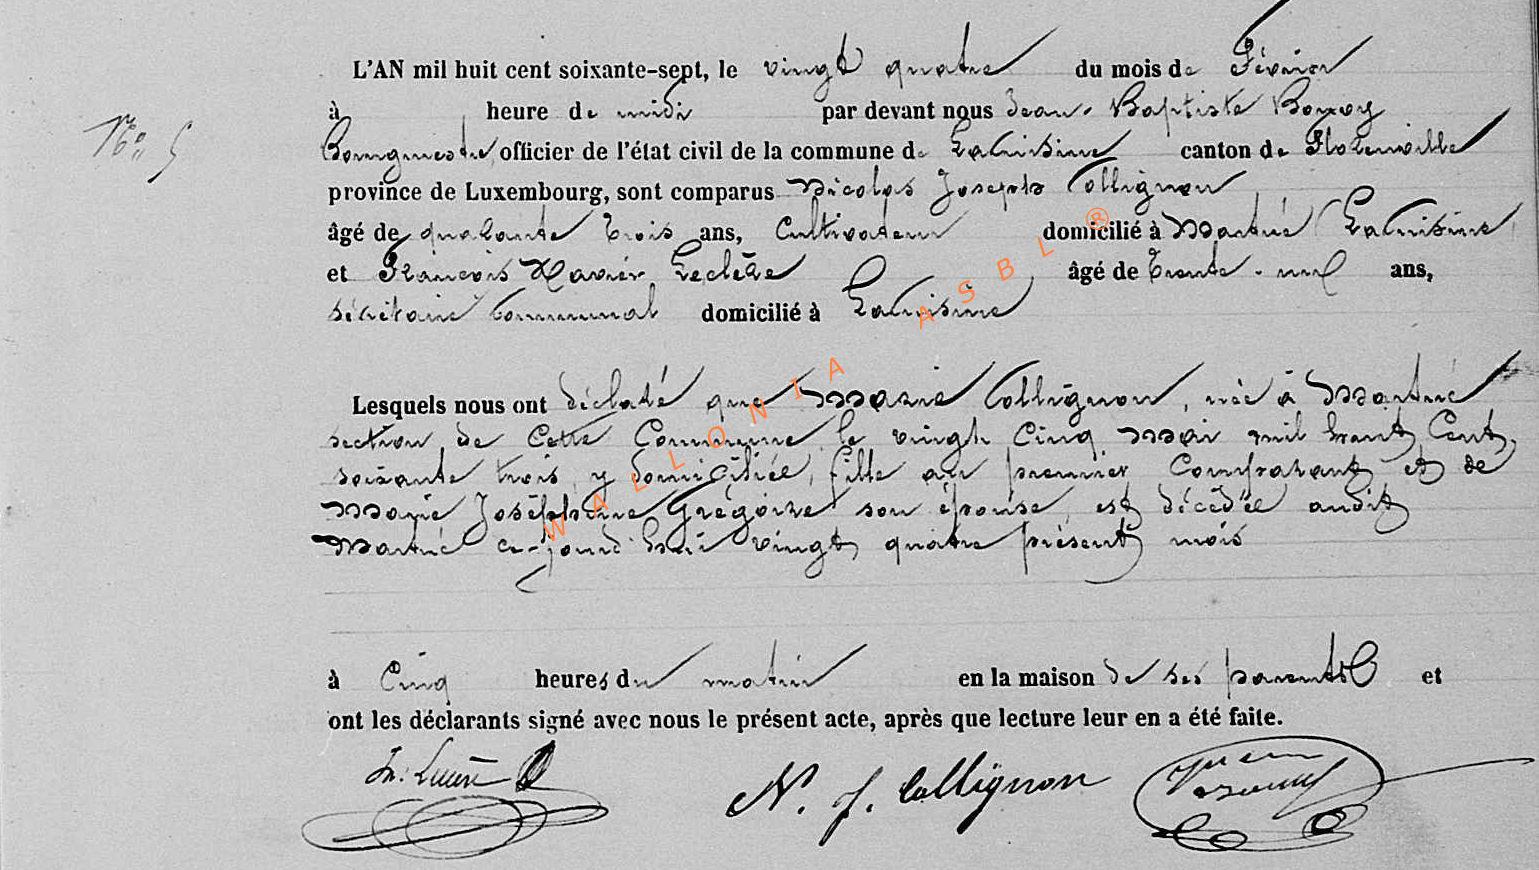 L'AN mil huit cent soixante-sept, le vingt quatre du mois de Février
à heure de midi par devant nous Jean-Baptiste
N° 5
Bourgmestre, officier de l'état civil de la commune de Lacuisine canton de Florenville
province de Luxembourg, sont comparus Nicolas Joseph Collignon
âgé de quarante trois ans, Cultivateur domicilié à Martué Lacuisine,
et François Xavier Leclère âgé de trente-neuf ans,
sécrétaire Communal domicilié à Lacuisine
Lesquels nous ont déclaré que Marie Collignon, née à Martué
section de cette Commune le vingt cinq mai mil huit cent
soixante trois, y domiciliée, fille au premier Comparant et de
Marie Joséphine Grégoire son épouse, est décédée audit
Martué ce-jourd'hui vingt quatre présent mois
à cinq heures du matin en la maison de ses parents et
ont les déclarants signé avec nous le présent acte, après que lecture leur en a été faite.
N. J. Collignon
WALLONIA ASBL ®